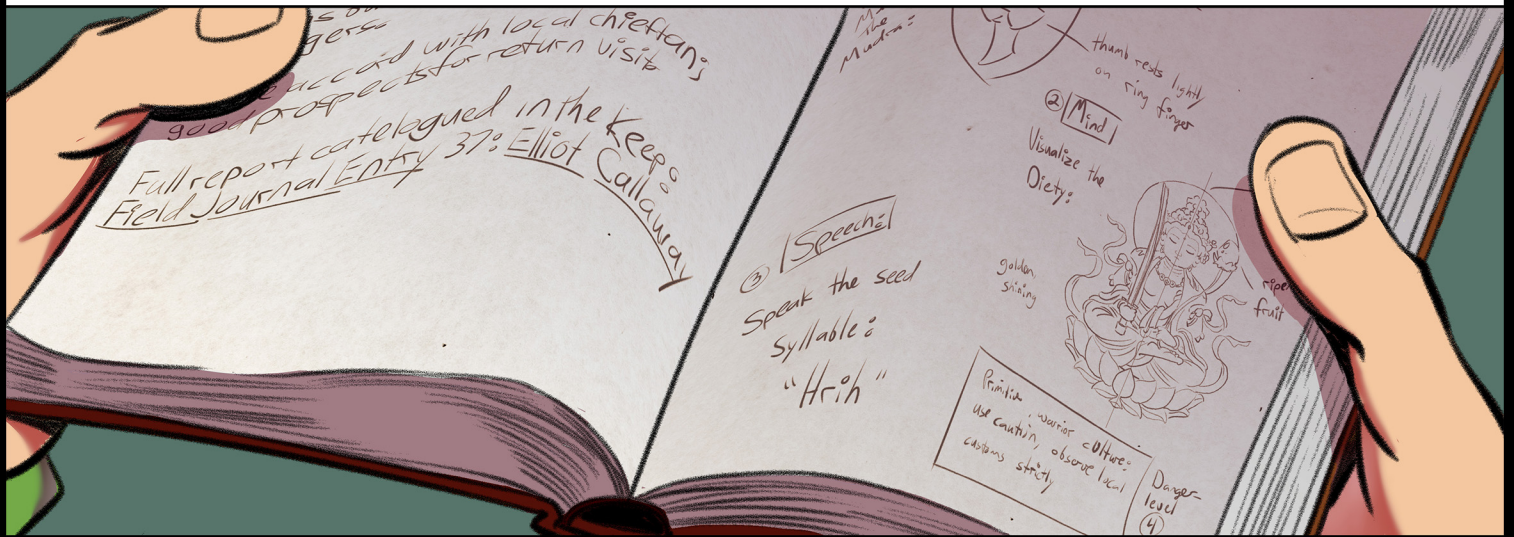 gers.
accord with local chieftans
good prospects for return visit
Full report catelogued in the Keep:
Field Journal Entry 37: Elliot Callaway
the
Mudra:
thumb rests lightly
on ring finger
② Mind
Visualize the
Diety:
golden,
shining
ripe
fruit
③ Speech:
Speak the seed
Syllable:
"Hrih"
Primitive, warrior culture:
use caution, observe local
customs strictly
Danger
level
④